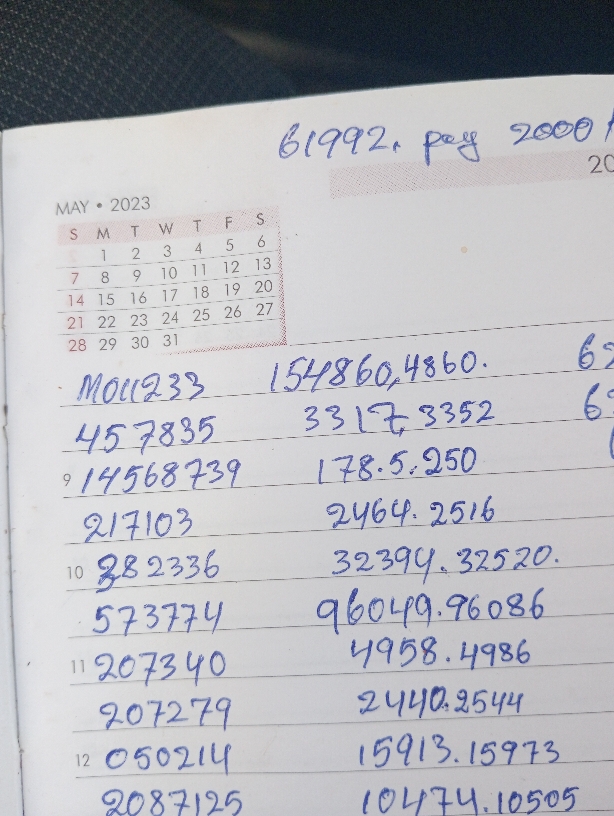 61992. pay 2000
20
MAY • 2023
S M T W T F S
1 2 3 4 5 6
7 8 9 10 11 12 13
14 15 16 17 18 19 20
21 22 23 24 25 26 27
28 29 30 31
M011233 154860,4860.
457835 3317,3352
9 14568739 178.5,250
217103 2464.2516
10 382336 32394.32520.
573774 96049.96086
11 207340 4958.4986
207279 2440.2544
12 050214 15913.15973
2087125 10474.10505